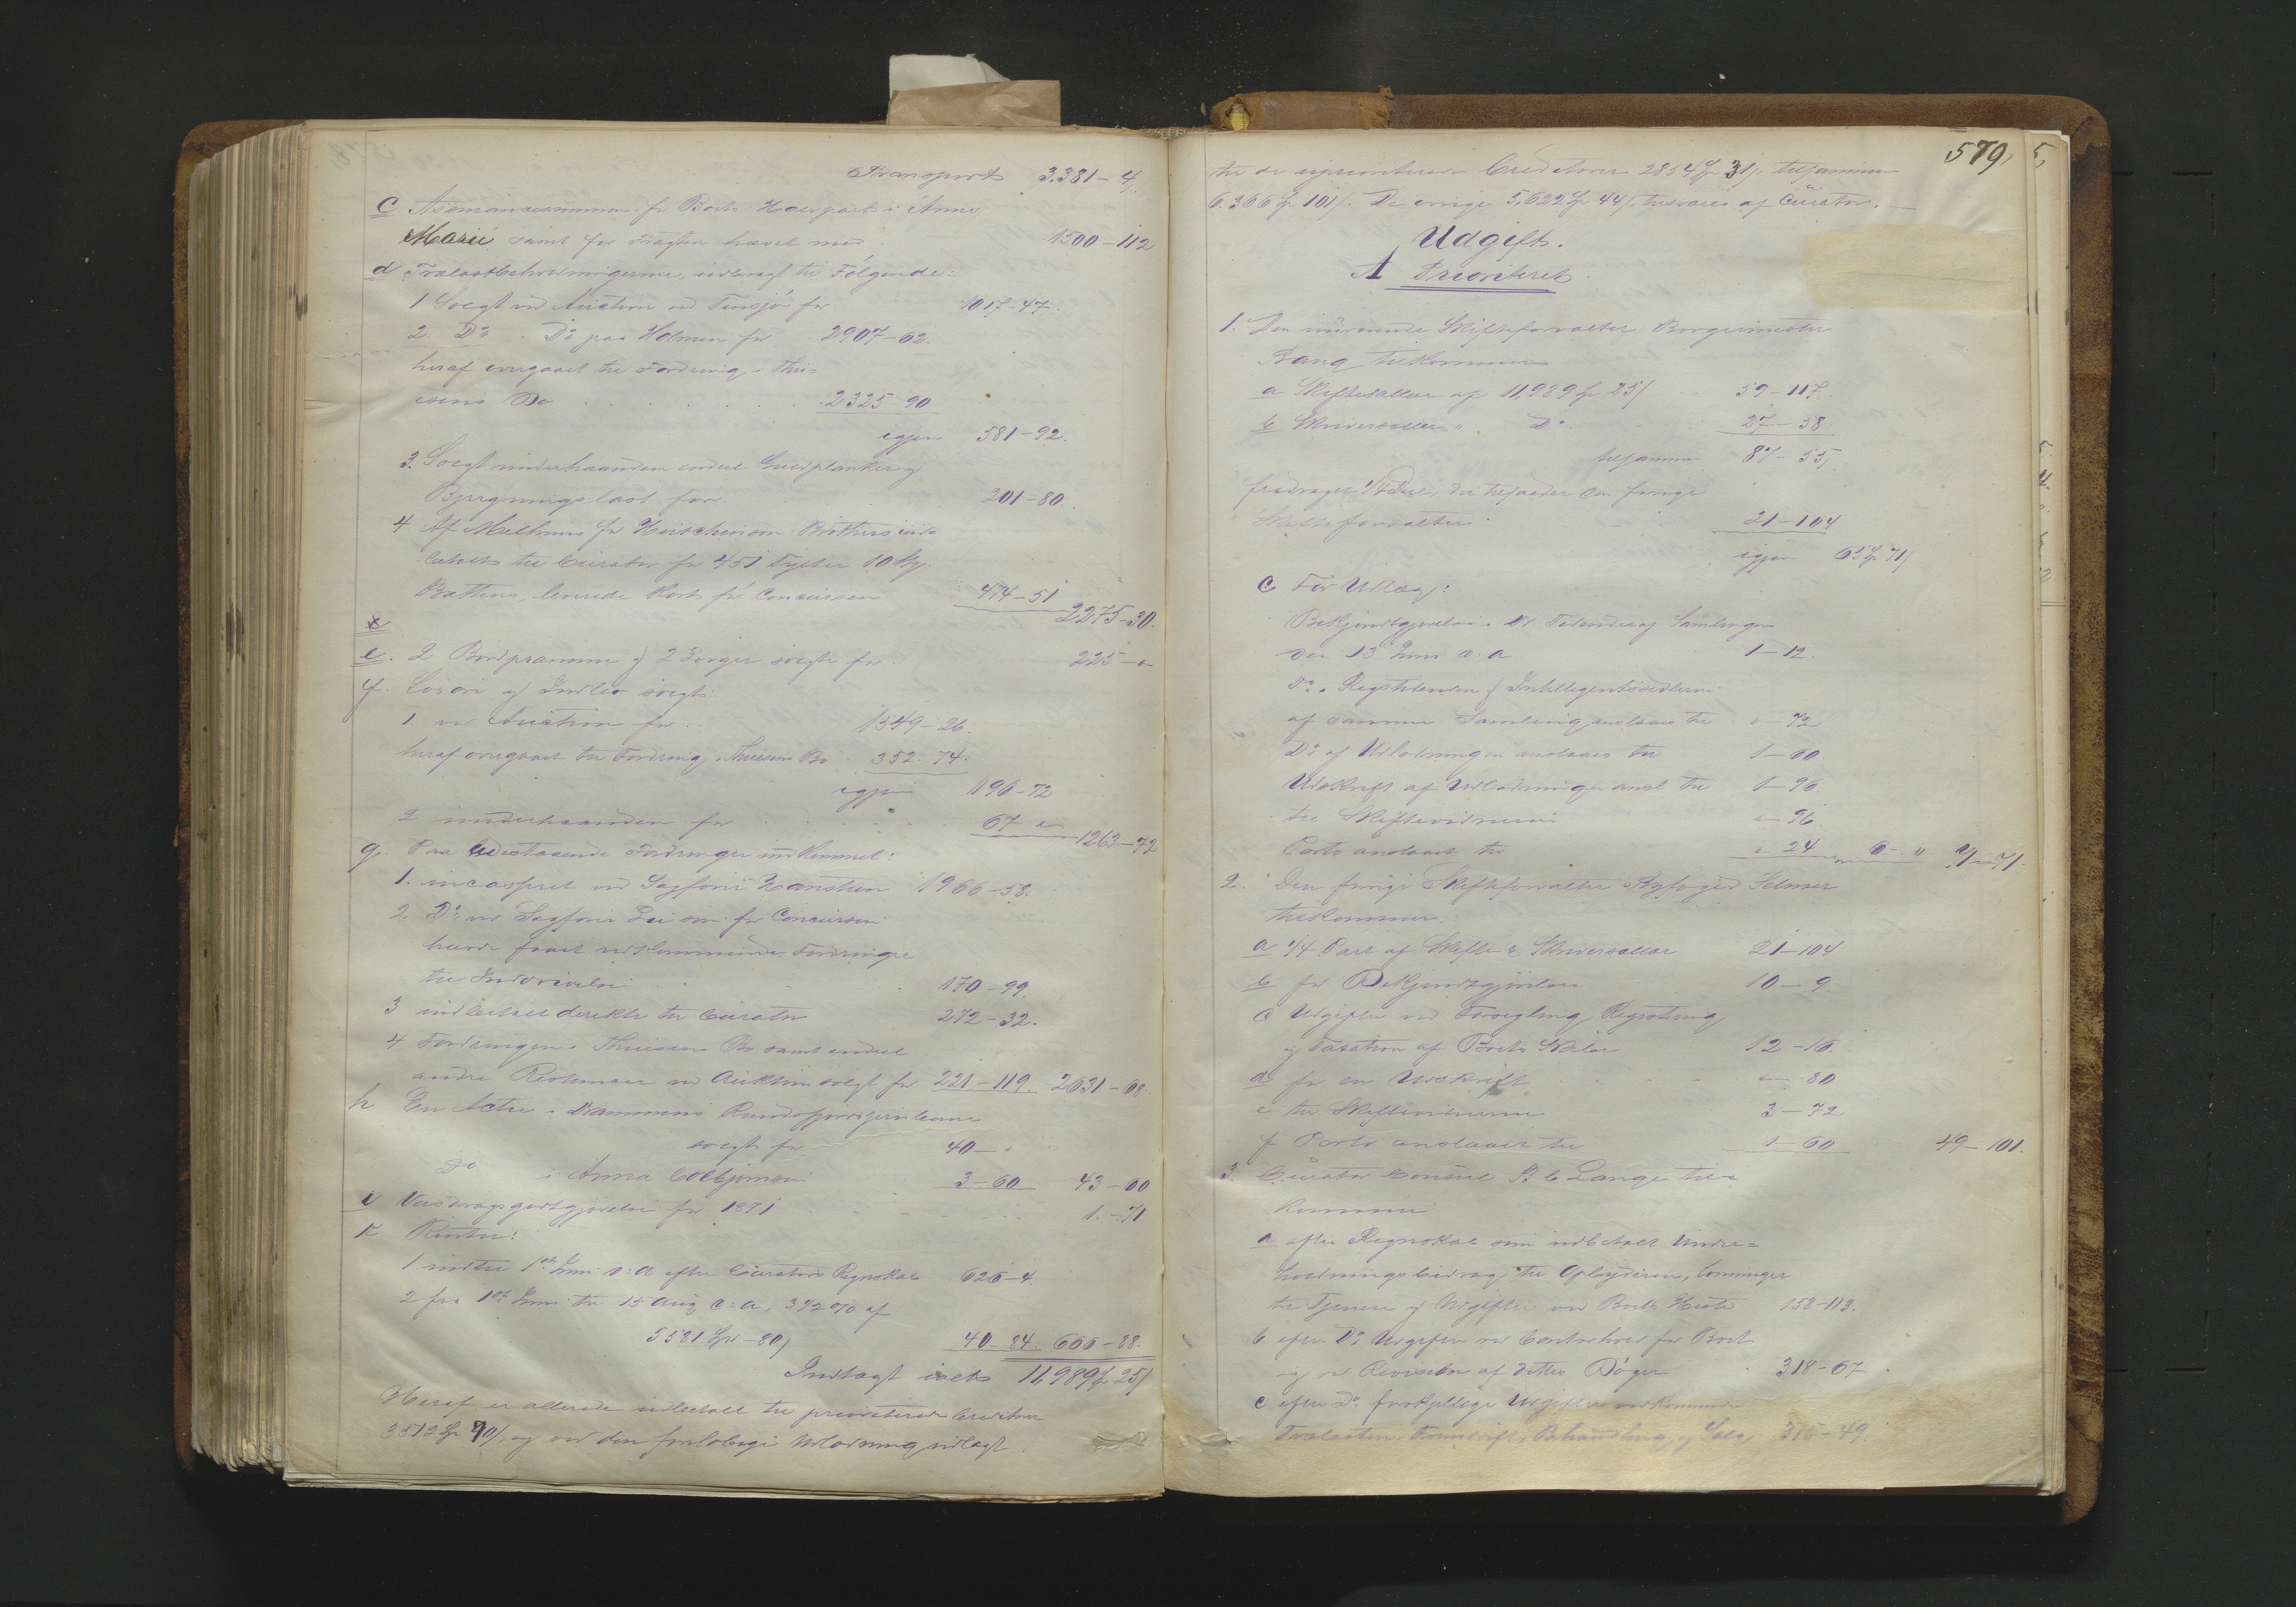 Transport 3.381-4/
c Assurancesummen for Boets Halvpart i Anne
Marie samt for Fragten hævet med 1500-112
d Trælastbeholdningerne, indbragt til Følgende:
1 Solgt ved Auction ved Tinsjø for 1017-47.
2 Do . Do paa Holmen for 2907-62.
heraf overgaaet til Fordring i Thi=
isens Bo 2325-90
igjen 581-92.
3. Solgt underhaanden endeel Gulvplanker og
Bjergningslast for 201-80
4 Af Melhuus for Huischinson Brothers ind=
betalt til Curator for 451 Tylter 10 Stk.
Battens, leverede kort før Concursen 474-51
2275-30.
e. 2 Bordpramme og 2 Senger solgte for 225-"
f. Løsøre og Indbo solgt
1 ved Auction for 1549-26.
heraf overgaaet til Fordring i Thiisens Bo 352-74.
igjen 1196-72
2 underhaanden for 67 "
1263-72
g. Paa udestaaende Fordringer indkommet:
1. incasseret ved Sagfører Hansteen 1966-58.
2 Do ved Sagfører Lie som før Concursen
havde faaet vedkommende Fordringer
til Inddrivelse 170-99.
3 indbetalt direkte til Curator 272-32.
4 Fordringen i Thiisens Bo samt endeel
andre Restancer ved Auktion solgt for 221-119. 2631-68.
h En Actie i Drammens Randsfjordjernbane
solgt for 40-"
Do i Anna Colbjørnsen 3-60 43-60
i Vasdragsgodtgjørelse for 1871 1.-71
k Renter:
1 indtil 1ste Juni d: a efter Curators Regnskab 626-4.
2 fra 1ste Juni til 15 Aug d: a, 3 1/2 % af
5581 Spd -80/ 40-84. 666-88.
Indtægt ialt 11,989 Spd 25/
Heraf er allerede udbetalt til prioriterede Creditorer
3512 Spd 70/, og ved den foreløbige Udlodning udlagt
579,
til de uprioriterede Creditorer 2854 Spd 31/. tilsammen
6.366 Spd 101/. De øvrige 5,622 Spd 44/, tilsvares af Curator.
Udgift.
A Prioriteret.
1. Den nuværende Skifteforvalter, Borgermester
Bang tilkommer
a Skiftesallær af 11,989 Spd 25/ 59-117.
b Skriversallær " Do 27-58.
tilsammen 87-55/
fradraget 1/4 Deel, der tilfalder den forrige
Skifteforvalter 21-104
igjen 65 Spd 71/
c For Udlæg:
Bekjendtgjørelse i Dr. Tidende af Samlingen
den 13 Juni d. a 1-12.
Do i Rigstidenden og Intelligentssedlerne
af samme Samling anslaaes til "-72
Do af Udlodningen anslaaes til 1-60
Udskrift af Udlodningen ansl. til 1-96
til Skiftevidnerne "-96
Porto anslaaet til "24 6-" 71-71.
2. Den forrige Skifteforvalter Byfoged Selmer
tilkommer
a 1/4 Part af Skifte & Skriversallær 21-104
b for Bekjendtgjørelser 10-9.
c Udgifter ved Forsegling, Registrering
og Taxation af Boets Eiendele 12-16.
d for en Udskrift "-80
e til Skiftevidnerne 3-72
f Porto anslaaet til 1-60 49-101.
3. Curator Consul B C Lange til=
kommer
a efter Regnskab som udbetalt Under=
holdningsbidrag til Opbyderen, Lønninger
til Tjenere og Udgifter ved Boets Heste 158-113.
b efter Do Udgifter ved Contorhold for Boet
og ved Revision af dettes Bøger 318-67.
c efter Do forskjellige Udgifter vedkommende
Trælasten Fremdrift, Behandling og Salg 315-49.